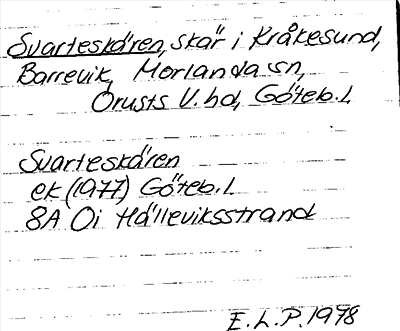 Svarteskären, skär i Kråkesund,
Barrevik, Morlanda sn,
Orusts V. hd, Göteb. l.
Svarteskären
ek (1977) Göteb. l.
8A Oi Hälleviksstrand
E. L. P. 1978